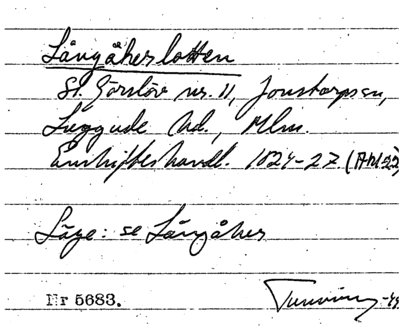 Långåkerslotten
St. Görslöv nr. 11, Jonstorps sn,
Luggude hd., Mlm.
Enskifteshandl. 1824-27
Läge: se Långåker
Nr 5683.